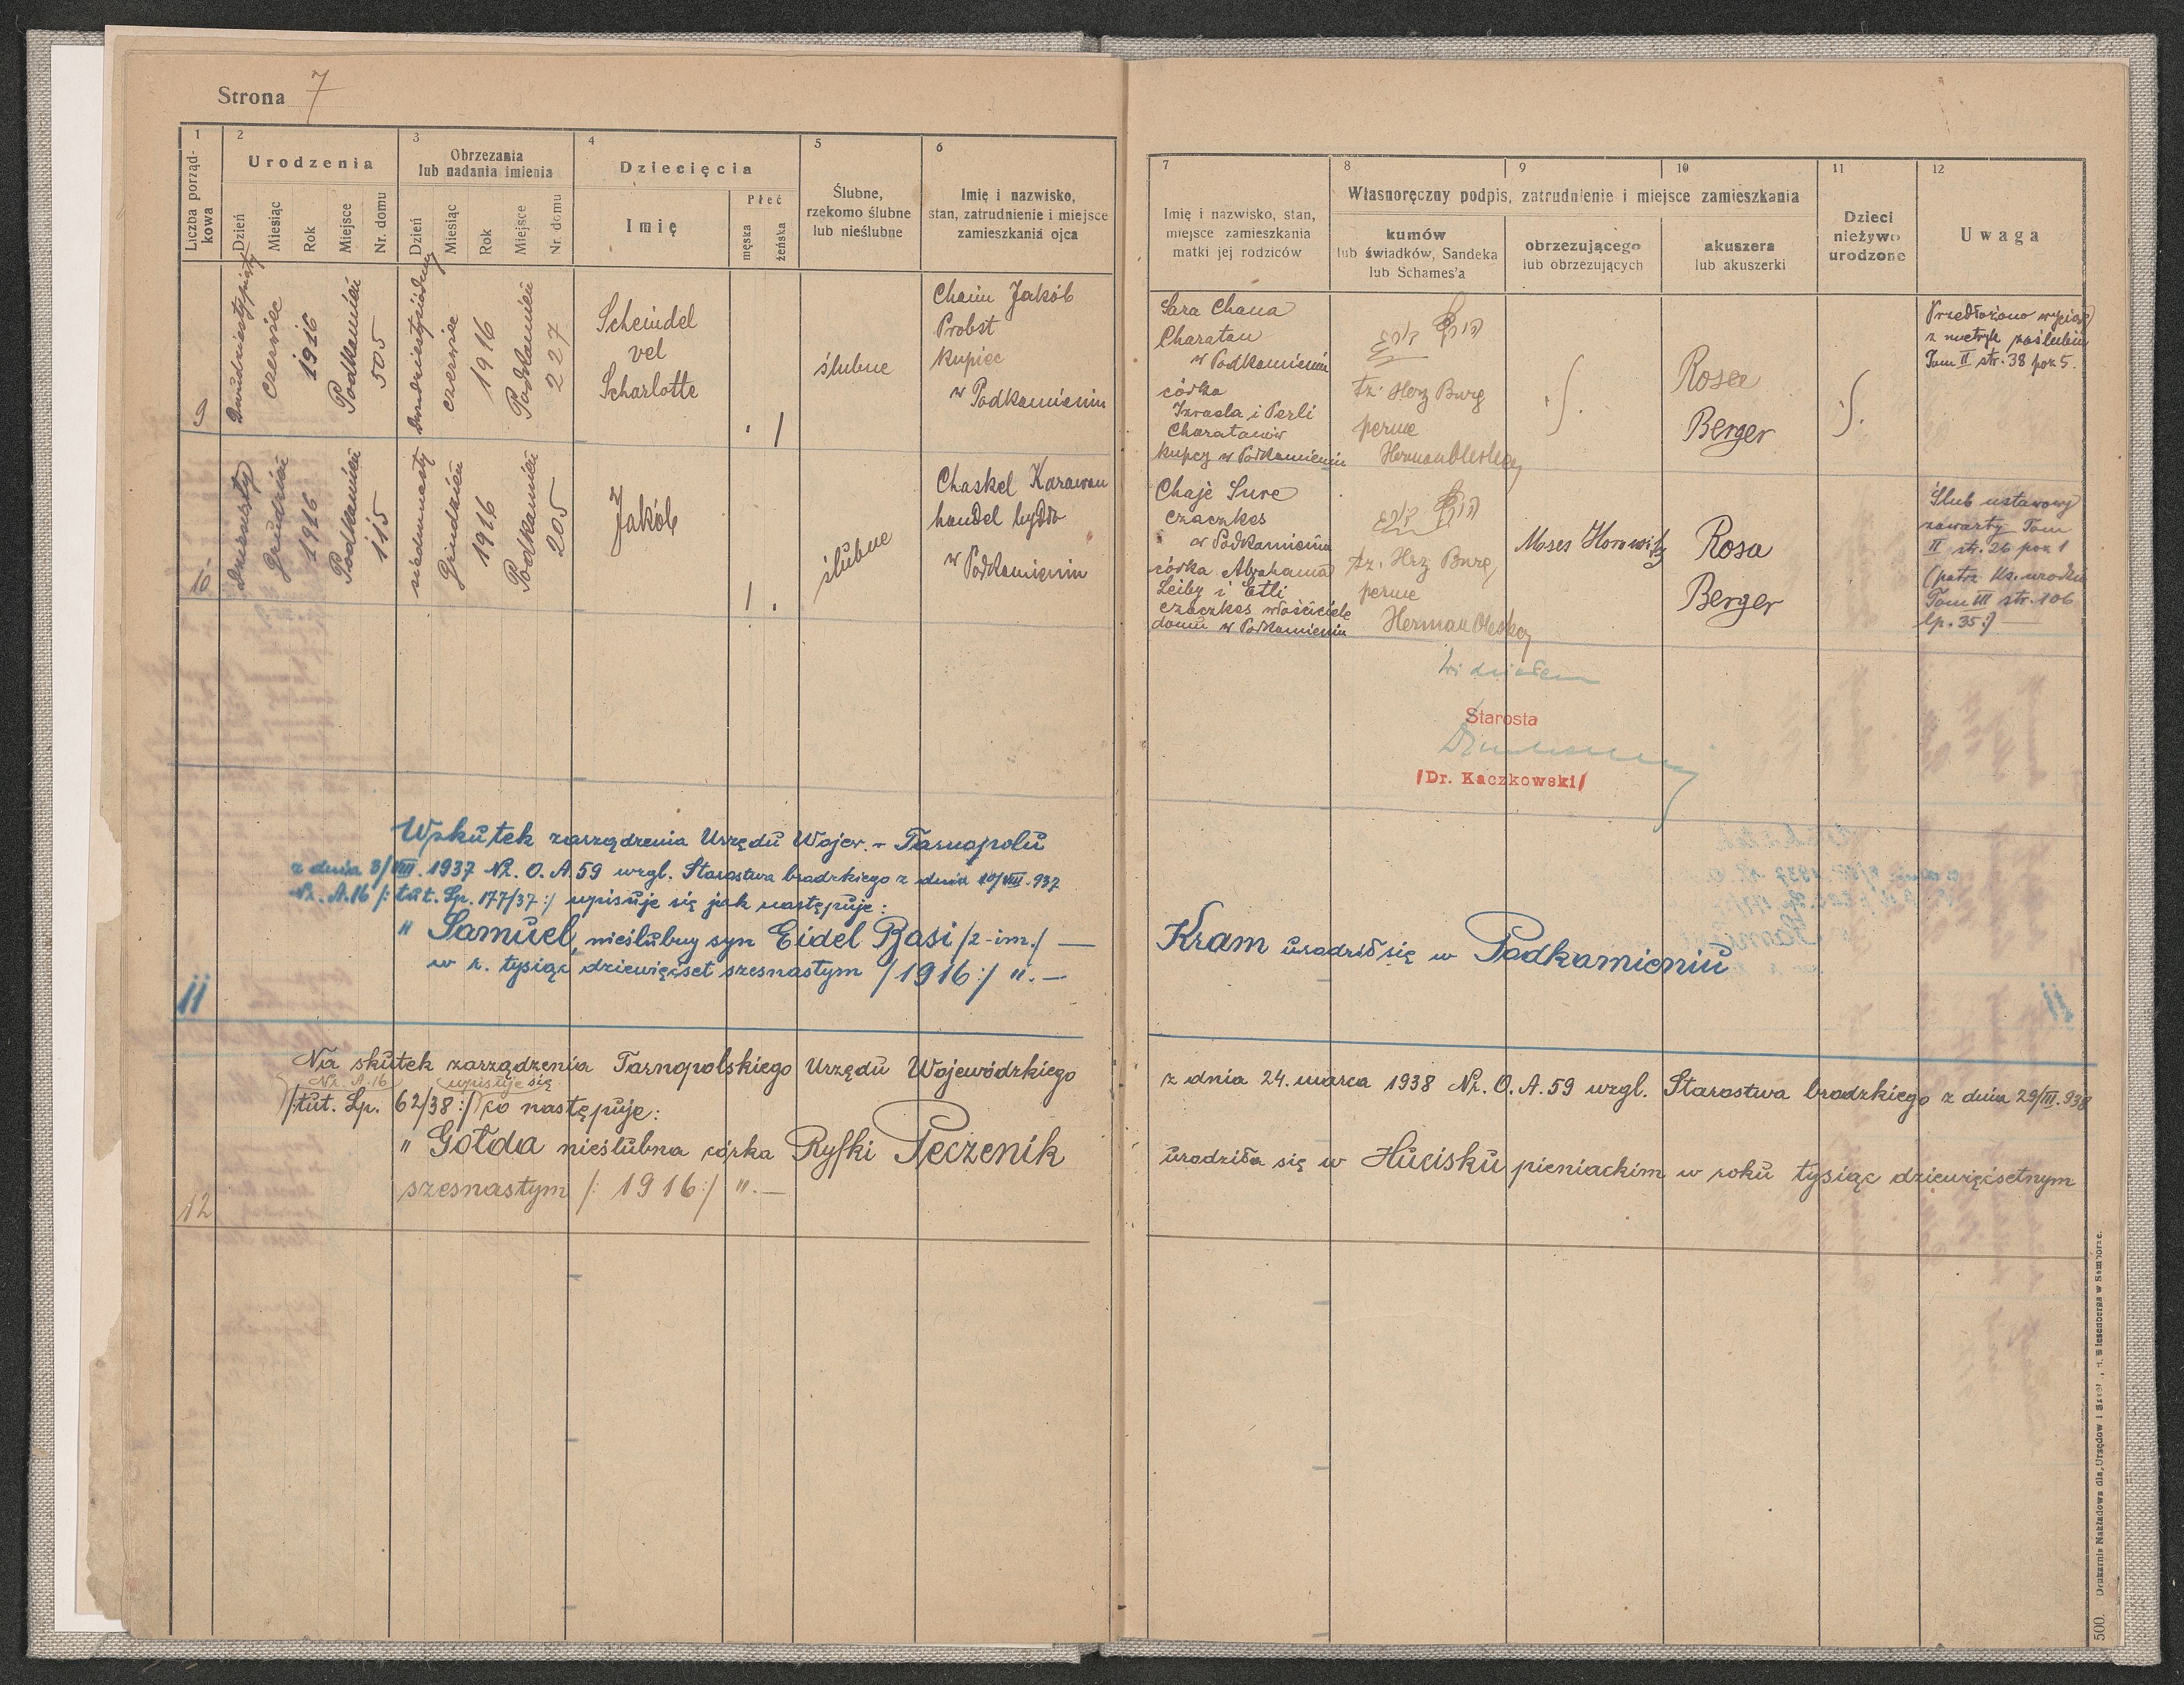 Strona 7
1
2
3
4
5
6
Liczba porząd-
kowa
Urodzenia
Dzień
Miesiąc
Rok
Miejsce
Nr. domu
Obrzezania
lub nadania imienia
Dzień
Miesiąc
Rok
Miejsce
Nr. domu
Dziecięcia
Imię
Płeć
męska
żeńska
Ślubne,
rzekomo ślubne
lub nieślubne
Imię i nazwisko,
stan, zatrudnienie i miejsce
zamieszkania ojca
7
8
9
10
11
12
Imię i nazwisko, stan,
miejsce zamieszkania
matki jej rodziców
Własnoręczny podpis, zatrudnienie i miejsce zamieszkania
kumów
lub świadków, Sandeka
lub Schames'a
obrzezującego
lub obrzezujących
akuszera
lub akuszerki
Dzieci
nieżywo
urodzone
Uwaga
9
Dwudziestypiąty
czerwiec
1916
Podkamień
505
Dwudziestysiódmy
czerwiec
1916
Podkamień
227
Scheindel
vel
Scharlotte
1
ślubne
Chaim Jakób
Probst
kupiec
w Podkamieniu
Sara Chana
Charatan
w Podkamieniu
córka
Izraela i Perli
Charatanów
kupcy w Podkamieniu
tz. Herz Burg
perwe
Rosa
Berger
Przedłożono wyciąg
z metryk zaślubin
Tom II str. 38 poz 5.
10
Dziewiąty
Grudzień
1916
Podkamień
115
siedemnasty
Grudzień
1916
Podkamień
205
Jakób
1
ślubne
Chaskel Karawan
handel bydło
w Podkamieniu
Chaje Sure
Czaczkes
w Podkamieniu
córka Abrahama
Leiby i Etli
czaczkes właściciele
domu w Podkamieniu
tz. Herz Burg
perwe
Moses Horowitz
Rosa
Berger
Ślub ustawowy
zawarty Tom
II str. 26 poz 1
(patrz ks. urodzin
Tom III str. 106
lp. 35:)
Widziałem
Starosta
/Dr. Kaczkowski/
11
Wskutek zarządzenia Urzędu Wojew. w Tarnopolu
z dnia 3/VIII. 1937 Nr. O. A. 59 wzgl. Starostwa brodzkiego z dnia 10/VIII. 937
Nr. A. 16 /: tut. Lp. 177/37 :/ wpisuje się jak następuje:
" Samuel, nieślubny syn Eidel Basi /2-im./ — Kram urodził się w Podkamieniu
w r. tysiąc dziewięćset szesnastym /1916:/ ". —
12
Na skutek zarządzenia Tarnopolskiego Urzędu Wojewódzkiego z dnia 24. marca 1938 Nr. O. A. 59 wzgl. Starostwa brodzkiego z dnia 29/III. 938
Nr. A. 16 wpisuje się
/tut. Lp. 62/38 :/ co następuje:
" Gołda nieślubna córka Ryfki Peczenik urodziła się w Hucisku pieniackim w roku tysiąc dziewięćsetnym
szesnastym /: 1916 :/ ". —
500. Drukarnia Nakładowa dla Urzędów i Szkół
w Samborze.